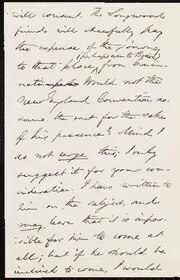 will consent. The Longwood
friends will cheerfully pay
the expense of the journey
(perhaps in part)
to that place, from Cincin-
nati. Would not the
New England Convention as-
sume the rest for the sake
of his presence? Mind I
do not urge this; I only
suggest it for your con-
sideration. I have written to
him on the subject, and
may learn that it is impos-
sible for him to come at
all; but if he should be
inclined to come, I would